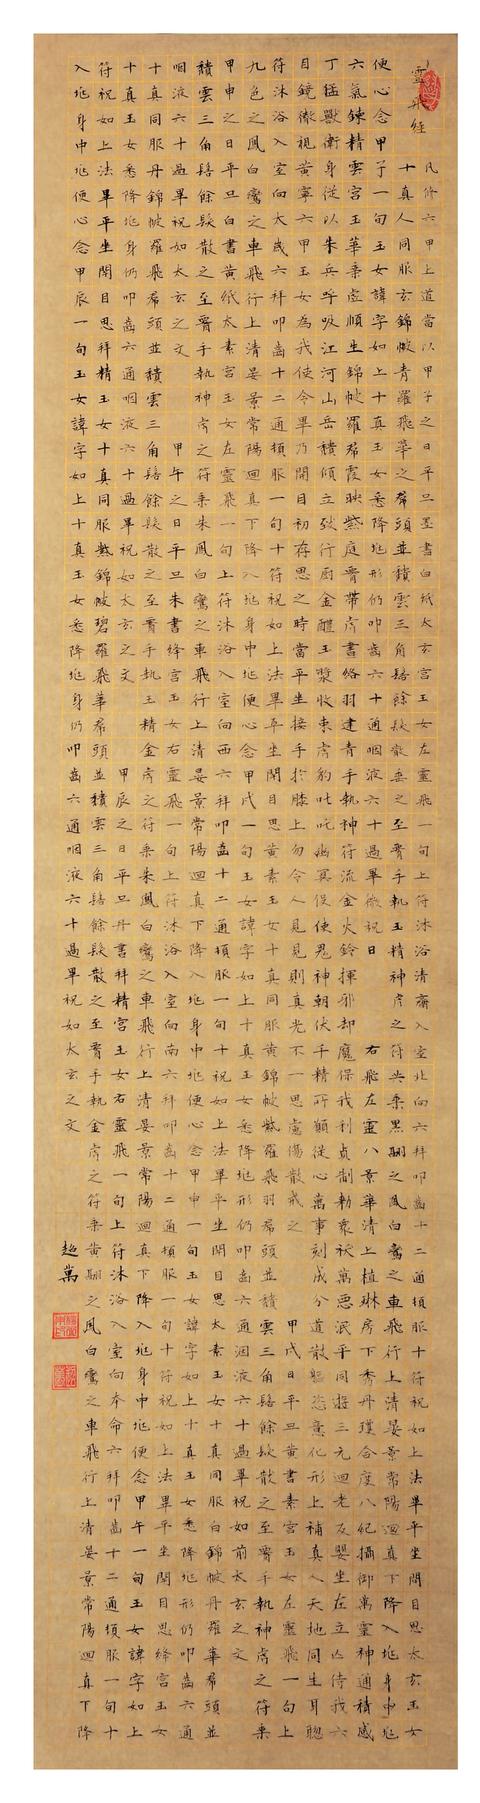 靈飛經
凡修六甲上道當以甲子之日平旦墨書白紙太玄宮玉女左靈飛一旬上符沐浴清齋入室北向六拜叩齒十二通頓服十符祝如上法畢平坐閉目思太玄玉女
十真人同服玄錦帔青羅飛華之裙頭並積雲三角髻餘髮散垂之至腰手執玉精神虎之符共乘黑翮之鳳白鸞之車飛行上清晏景常陽迴真下降入㘴身中㘴
便心念甲子一旬玉女諱字如上十真玉女悉降㘴形仍叩齒六十通咽液六十過畢微祝曰 右飛左靈八景華清上植琳房下秀丹瓊合度八紀攝御萬靈神通積感
六氣鍊精雲宮玉華乘虛順生錦帔羅裙霞映紫庭腰帶虎書絡羽建青手執神符流金火鈴揮邪却魔保我利貞制勅衆祅萬惡泯平同遊三元迴老反嬰坐在立亡侍我六
丁猛獸衛身從以朱兵呼吸江河山岳積傾立致行廚金醴玉漿收束虎豹吒叱幽冥役使鬼神朝伏千精所願從心萬事刻成分道散軀恣意化形上補真人天地同生耳聰
目鏡徹視黃寧六甲玉女為我使令畢乃開目初存思之時當平坐接手於膝上勿令人見見則真光不一思慮傷散戒之 甲戌日平旦黃書素宮玉女左靈飛一旬上
符沐浴入室向太歲六拜叩齒十二通頓服一旬十符祝如上法畢平坐閉目思黃素玉女十真同服黃錦帔紫羅飛羽裙頭並積雲三角髻餘髮散之至腰手執神虎之符乘
九色之鳳白鸞之車飛行上清晏景常陽迴真下降入㘴身中㘴便心念甲戌一旬玉女諱字如上十真玉女悉降㘴形仍叩齒六通咽液六十過畢祝如前太玄之文
甲申之日平旦白書黃紙太素宮玉女左靈飛一旬上符沐浴入室向西六拜叩齒十二通頓服一旬十祝如上法畢平坐閉目思太素玉女十真同服白錦帔丹羅華裙頭並
積雲三角髻餘髮散之至腰手執神虎之符乘朱鳳白鸞之車飛行上清晏景常陽迴真下降入㘴身中㘴便心念甲申一旬玉女諱字如上十真玉女悉降㘴形仍叩齒六通
咽液六十過畢祝如太玄之文 甲午之日平旦朱書絳宮玉女右靈飛一旬上符沐浴入室向南六拜叩齒十二通頓服一旬十符祝如上法畢平坐閉目思絳宮玉女
十真同服丹錦帔羅飛裙頭並積雲三角髻餘髮散之至腰手執玉精金虎之符乘朱鳳白鸞之車飛行上清晏景常陽迴真下降入㘴身中㘴便念甲午一旬玉女諱字如上
十真玉女悉降㘴身仍叩齒六通咽液六十過畢祝如太玄之文 甲辰之日平旦丹書拜精宮玉女右靈飛一旬上符沐浴入室向本命六拜叩齒十二通頓服一旬十
符祝如上法畢平坐閉目思拜精玉女十真同服紫錦帔碧羅飛華裙頭並積雲三角髻餘髮散之至腰手執金虎之符乘黃翮之鳳白鸞之車飛行上清晏景常陽迴真下降
入㘴身中㘴便心念甲辰一旬玉女諱字如上十真玉女悉降㘴身仍叩齒六通咽液六十過畢祝如太玄之文
超萬